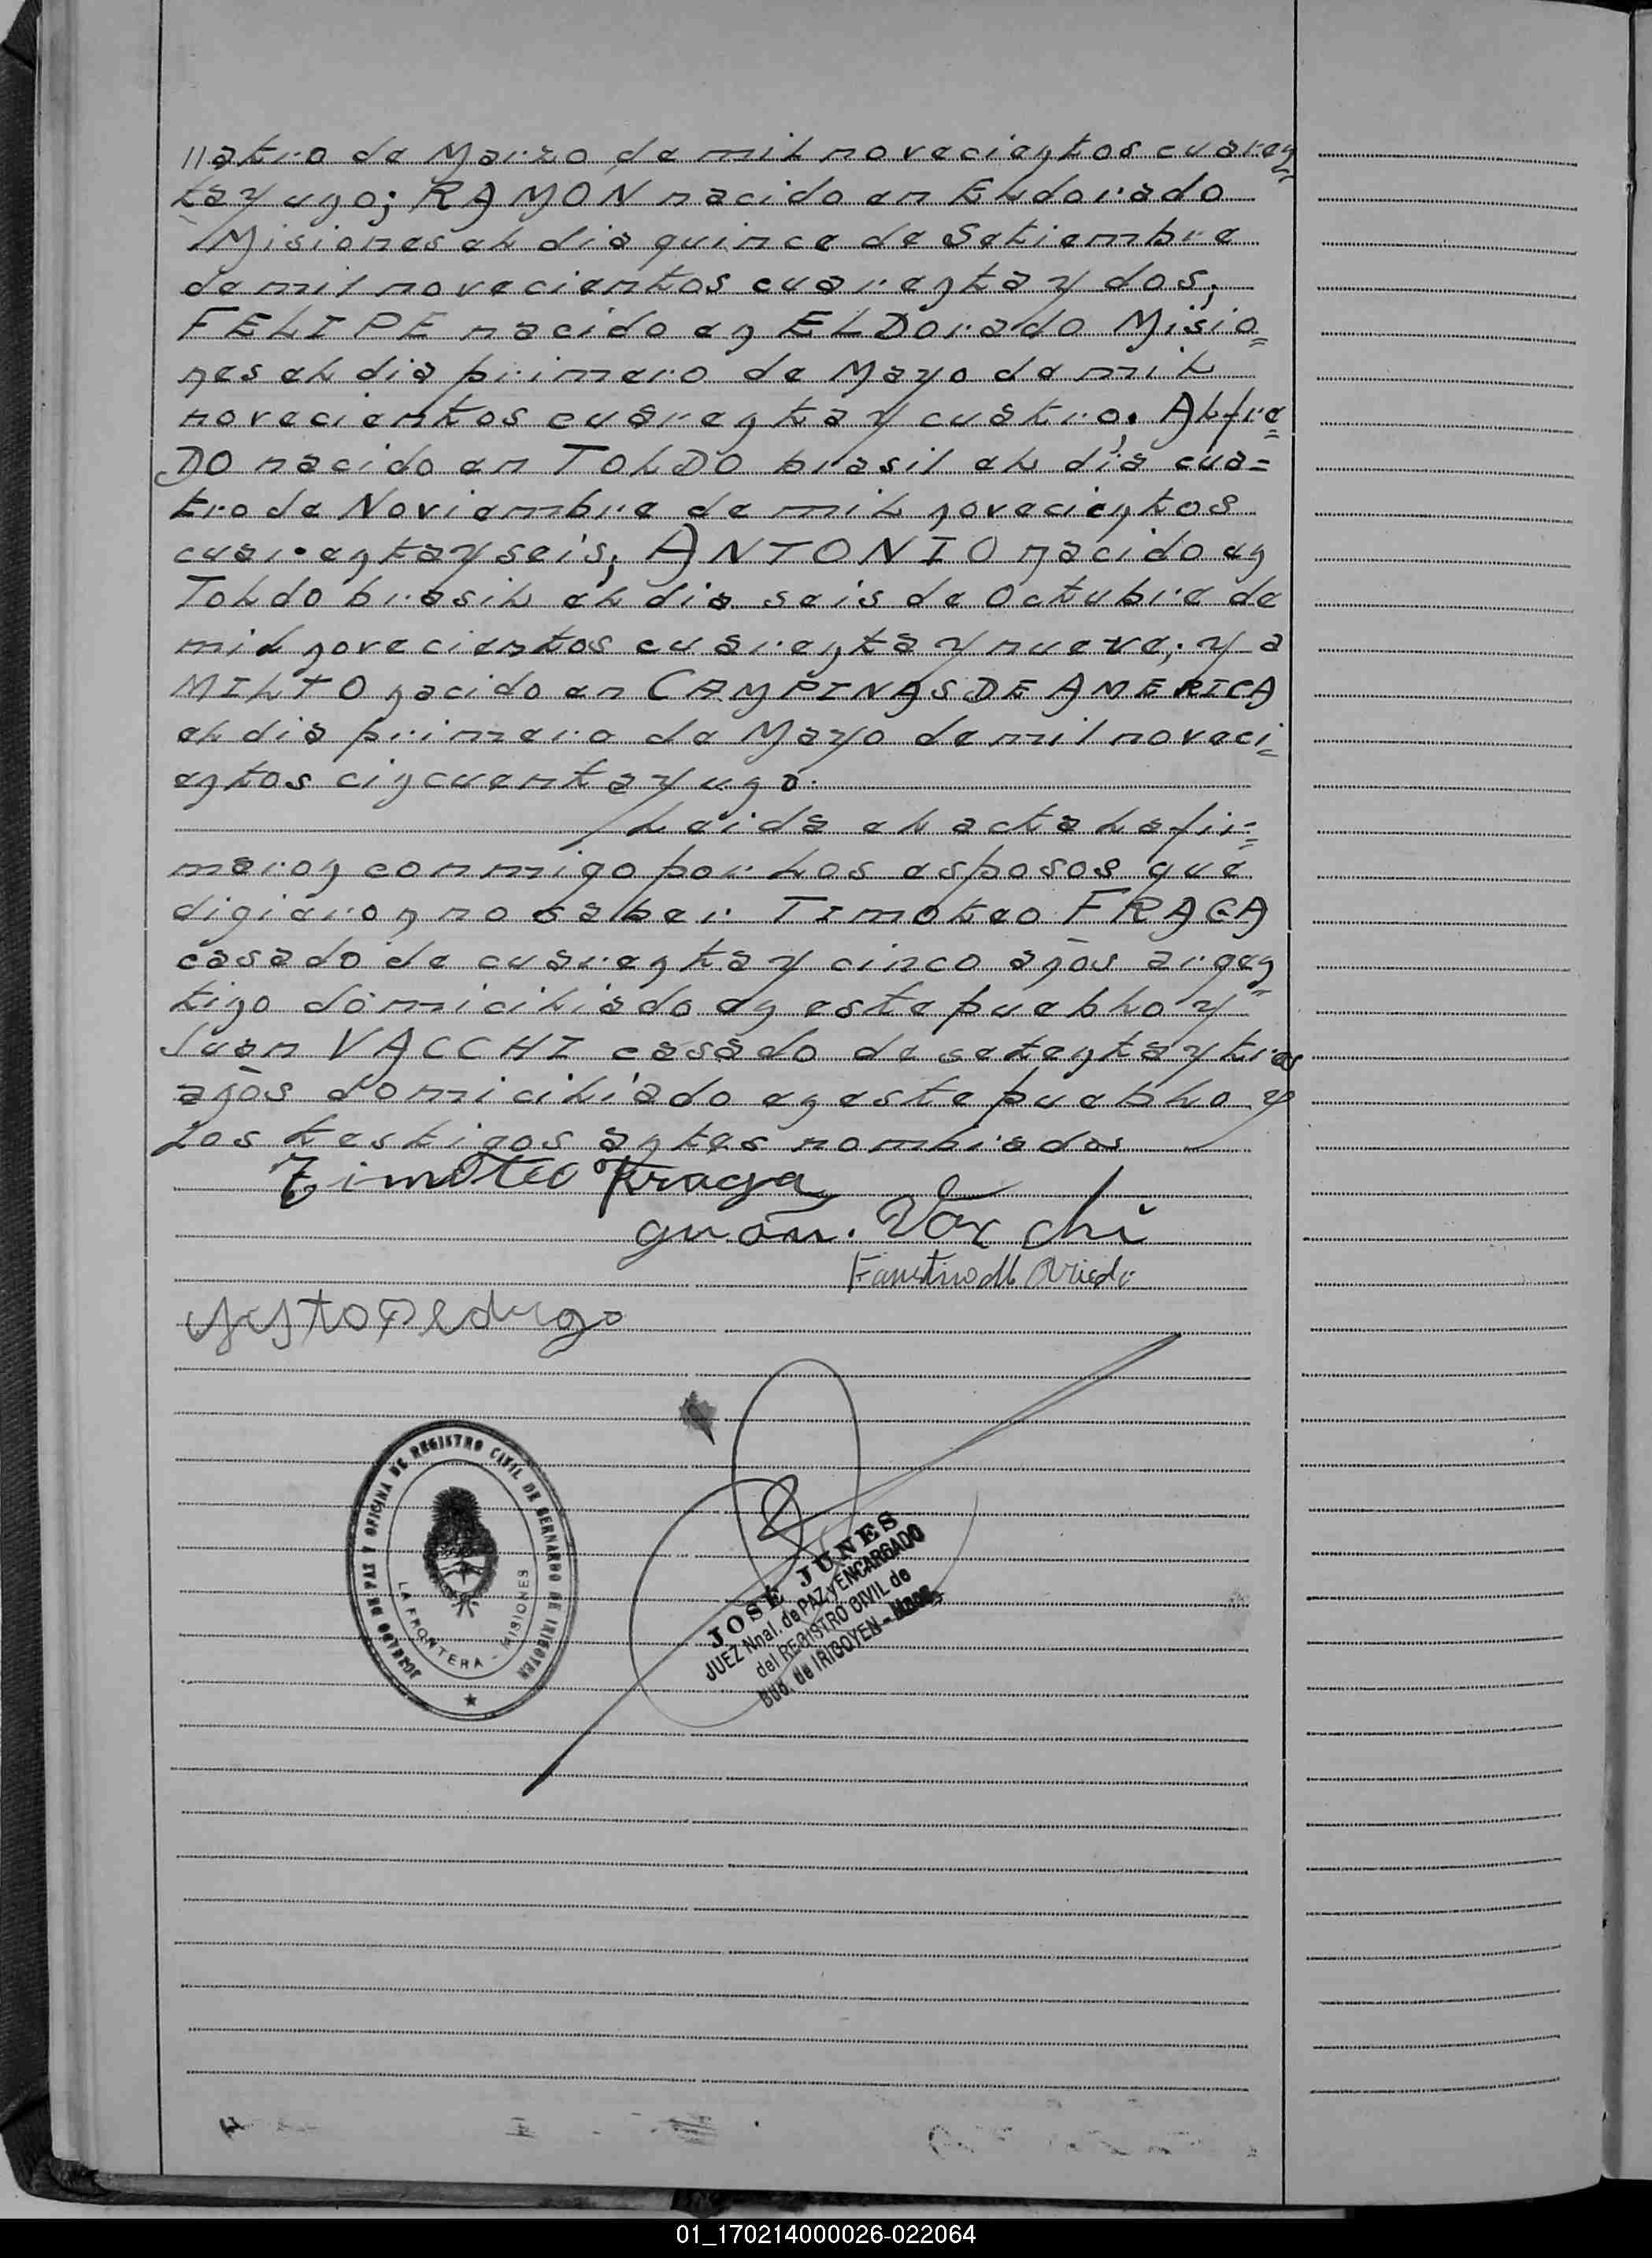 //atro de Marzo de mil novecientos cuaren
ta y uno; RAMON nacido en Eldorado
Misiones el dia quince de Setiembre
de mil novecientos cuarenta y dos;
FELIPE nacido en ELDorado Misio=
nes el dia primero de Mayo de mil
novecientos cuarenta y cuatro; Alfre=
DO nacido en TOLDO brasil el dia cua=
tro de Noviembre de mil novecientos
cuarenta y seis; ANTONIO nacido en
Toldo brasil el dia seis de Octubre de
mil novecientos cuarenta y nueve; y a
MILTO nacido en CAMPINAS DE AMERICA
el dia primero de Mayo de mil noveci=
entos cincuenta y uno.
Leida el acta la fir=
maron conmigo por los esposos que
digieron no saber Timoteo FRAGA
casado de cuarenta y cinco años argen
tino domiciliado en este pueblo y
Juan VACCHI casado de setenta y tres
años domiciliado en este pueblo y
los testigos antes nombrados
Timoteo Fraga
guan. Vacchi
Faustino M
JUZGADO DE PAZ Y OFICINA DE REGISTRO CIVIL DE BERNARDO DE IRIGOYEN
LA FRONTERA - MISIONES
JOSE JUNES
JUEZ Nnal. de PAZ y ENCARGADO
del REGISTRO CIVIL de
Bdo. de IRIGOYEN - Mnes
01_170214000026-022064